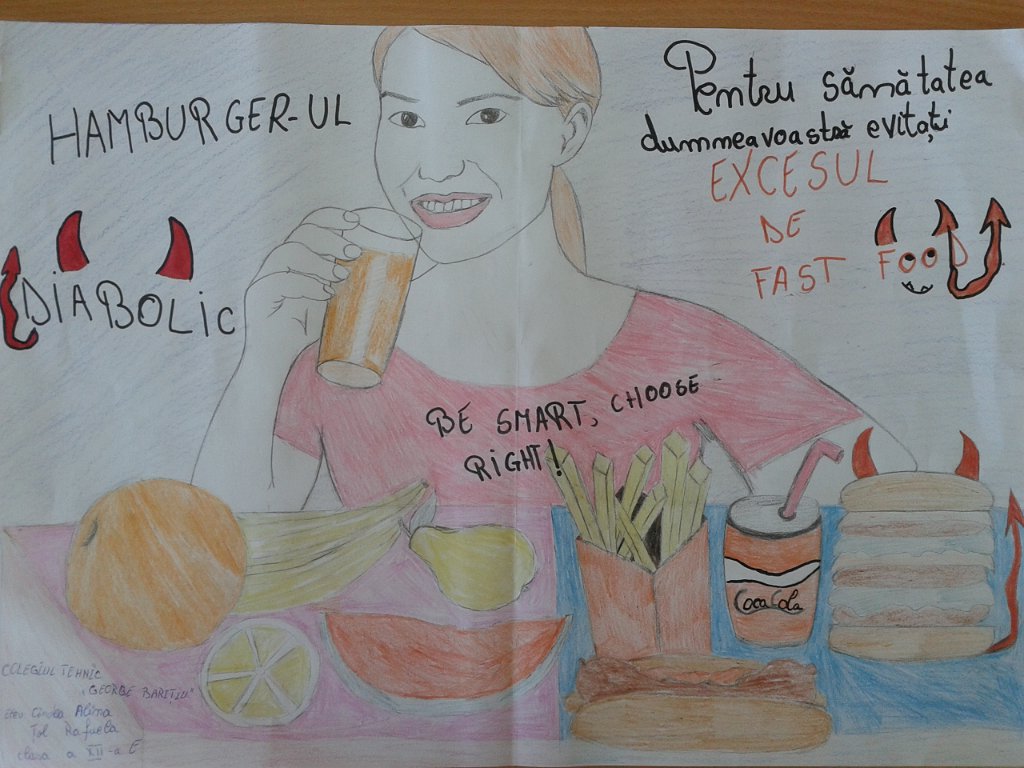 HAMBURGER-UL
DIABOLIC
Pentru sănătatea
dumneavoastră evitați
EXCESUL
DE
FAST FOOD
BE SMART, CHOOSE
RIGHT!
Coca Cola
COLEGIUL TEHNIC
"GEORGE BARIȚIU"
elev Alina
Rafuela
clasa a XII-a E